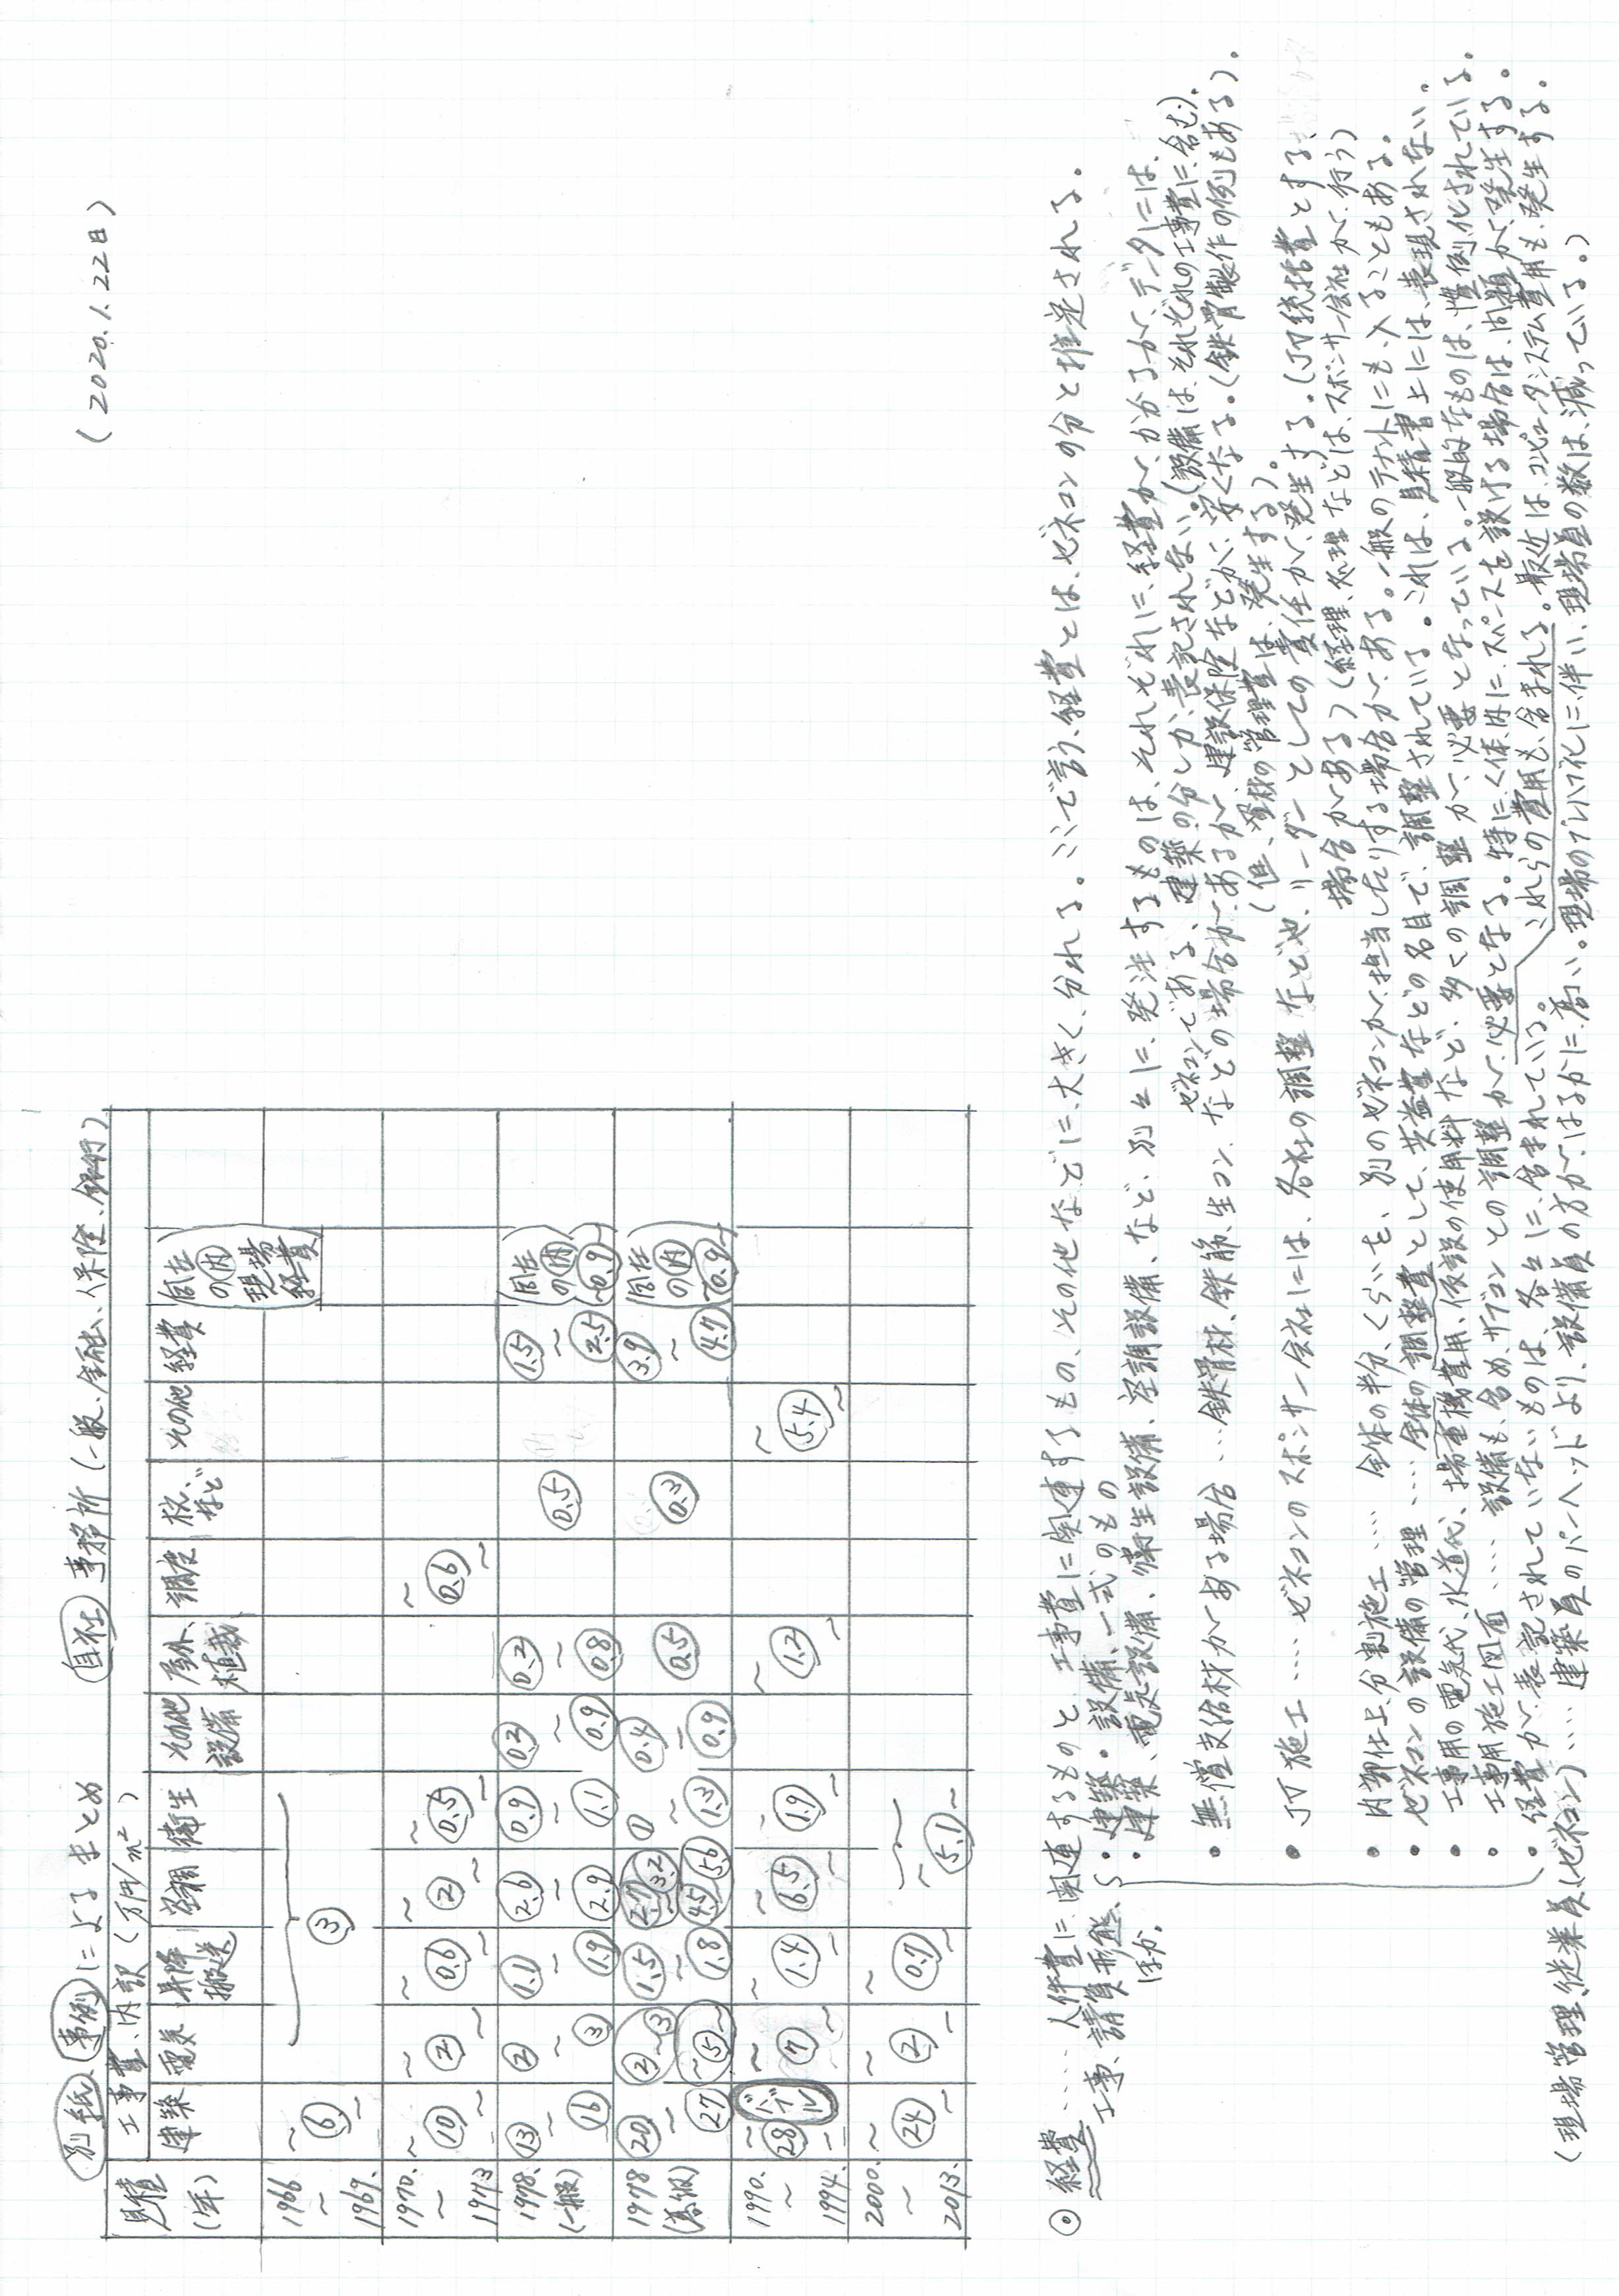 (2020.1.22日)
別紙、事例によるまとめ 自社 事務所 (一般、金融、保険、銀行)
見積(年) 工事費、内訳 (万円/m²)
建築 電気 昇降搬送 空調 衛生 その他設備 屋外、植栽 調度 その他 経費 (自社の内現場経費)
1966~1969. ~6~ 3
1970.~1973 ~10~ ~2~ ~0.6~ ~2~ ~0.5~ ~0.6~
1978.(一般) 13~16 2~3 1.1~1.9 2.6~2.9 0.9~1.1 0.2~0.9 0.2~0.8 0.5 1.5~2.5 0.9
1978(高級) 20~27 2~3 ~5~ 1.5~1.8 2.7~3.2 4.5~5.6 1~1.3 0.4~0.9 0.5 0.3 3.9~4.7 0.9
1990.~1994. ~28~ バブル ~7~ ~1.4~ ~6.5~ ~1.9~ ~1.2~ ~5.4~
2000.~2013. ~24~ ~2~ ~0.7~ ~5.1~
◎ 経費 ‥‥ 人件費に関連するものと、工事費に関連するもの、その他などに、大きく、分れる。ここで言う、経費とは、ゼネコンの分と推定される。
工事、請負形態、ほか、
• 建築・設備、一式のもの
• 建築、電気設備、衛生設備、空調設備、など、別々に、発注するものは、それぞれに、経費が、かかるが、データーには、
ゼネコンである、建築の分しか、表記されない。(設備は、それぞれの工事費に、含む)。
• 無償支給材がある場合 … 鉄骨材、鉄筋、生コン、などの場合があるが、建設保険などが、安くなる。(鉄骨製作の例もある)。
(但、資材の管理費は、発生する)。
• JV施工 ‥‥ ゼネコンのスポンサー会社には、各社の調整などや、リーダーとしての責任が、発生する。(JV統括費とする、
場合がある) (経理、処理などは、スポンサー会社が、行う)
• 内部仕上、分割施工 ‥‥ 全体の半分、くらいを、別のゼネコンが、担当したりする場合が、ある。一般のテナントにも、入ることもある。
• ゼネコンの設備の管理 ‥‥ 全体の調整費として、共益費などの名目で、調整されている。これは、見積書上には、表現されない。
• 工事用の電気代、水道代、揚重機費用、仮設の使用料など、多くの調整が、必要となっている。一般的なものは、慣例化されている。
• 工事用施工図面 ‥‥ 設備も、含め、サブコンとの調整が、必要となる。特に、く体内に、スペースを設ける場合は、問題が、発生する。
• 経費が、表記されていないものは、各々に、含まれている。 これらの費用も、含まれる。最近は、コンピュータシステム費用も、発生する。
(現場管理、従業員(ゼネコン) ‥‥ 建築員のパーヘッドより、設備員の方が、はるかに高い。現場のプレハブ化に伴い、現場員の数は、減っている。)